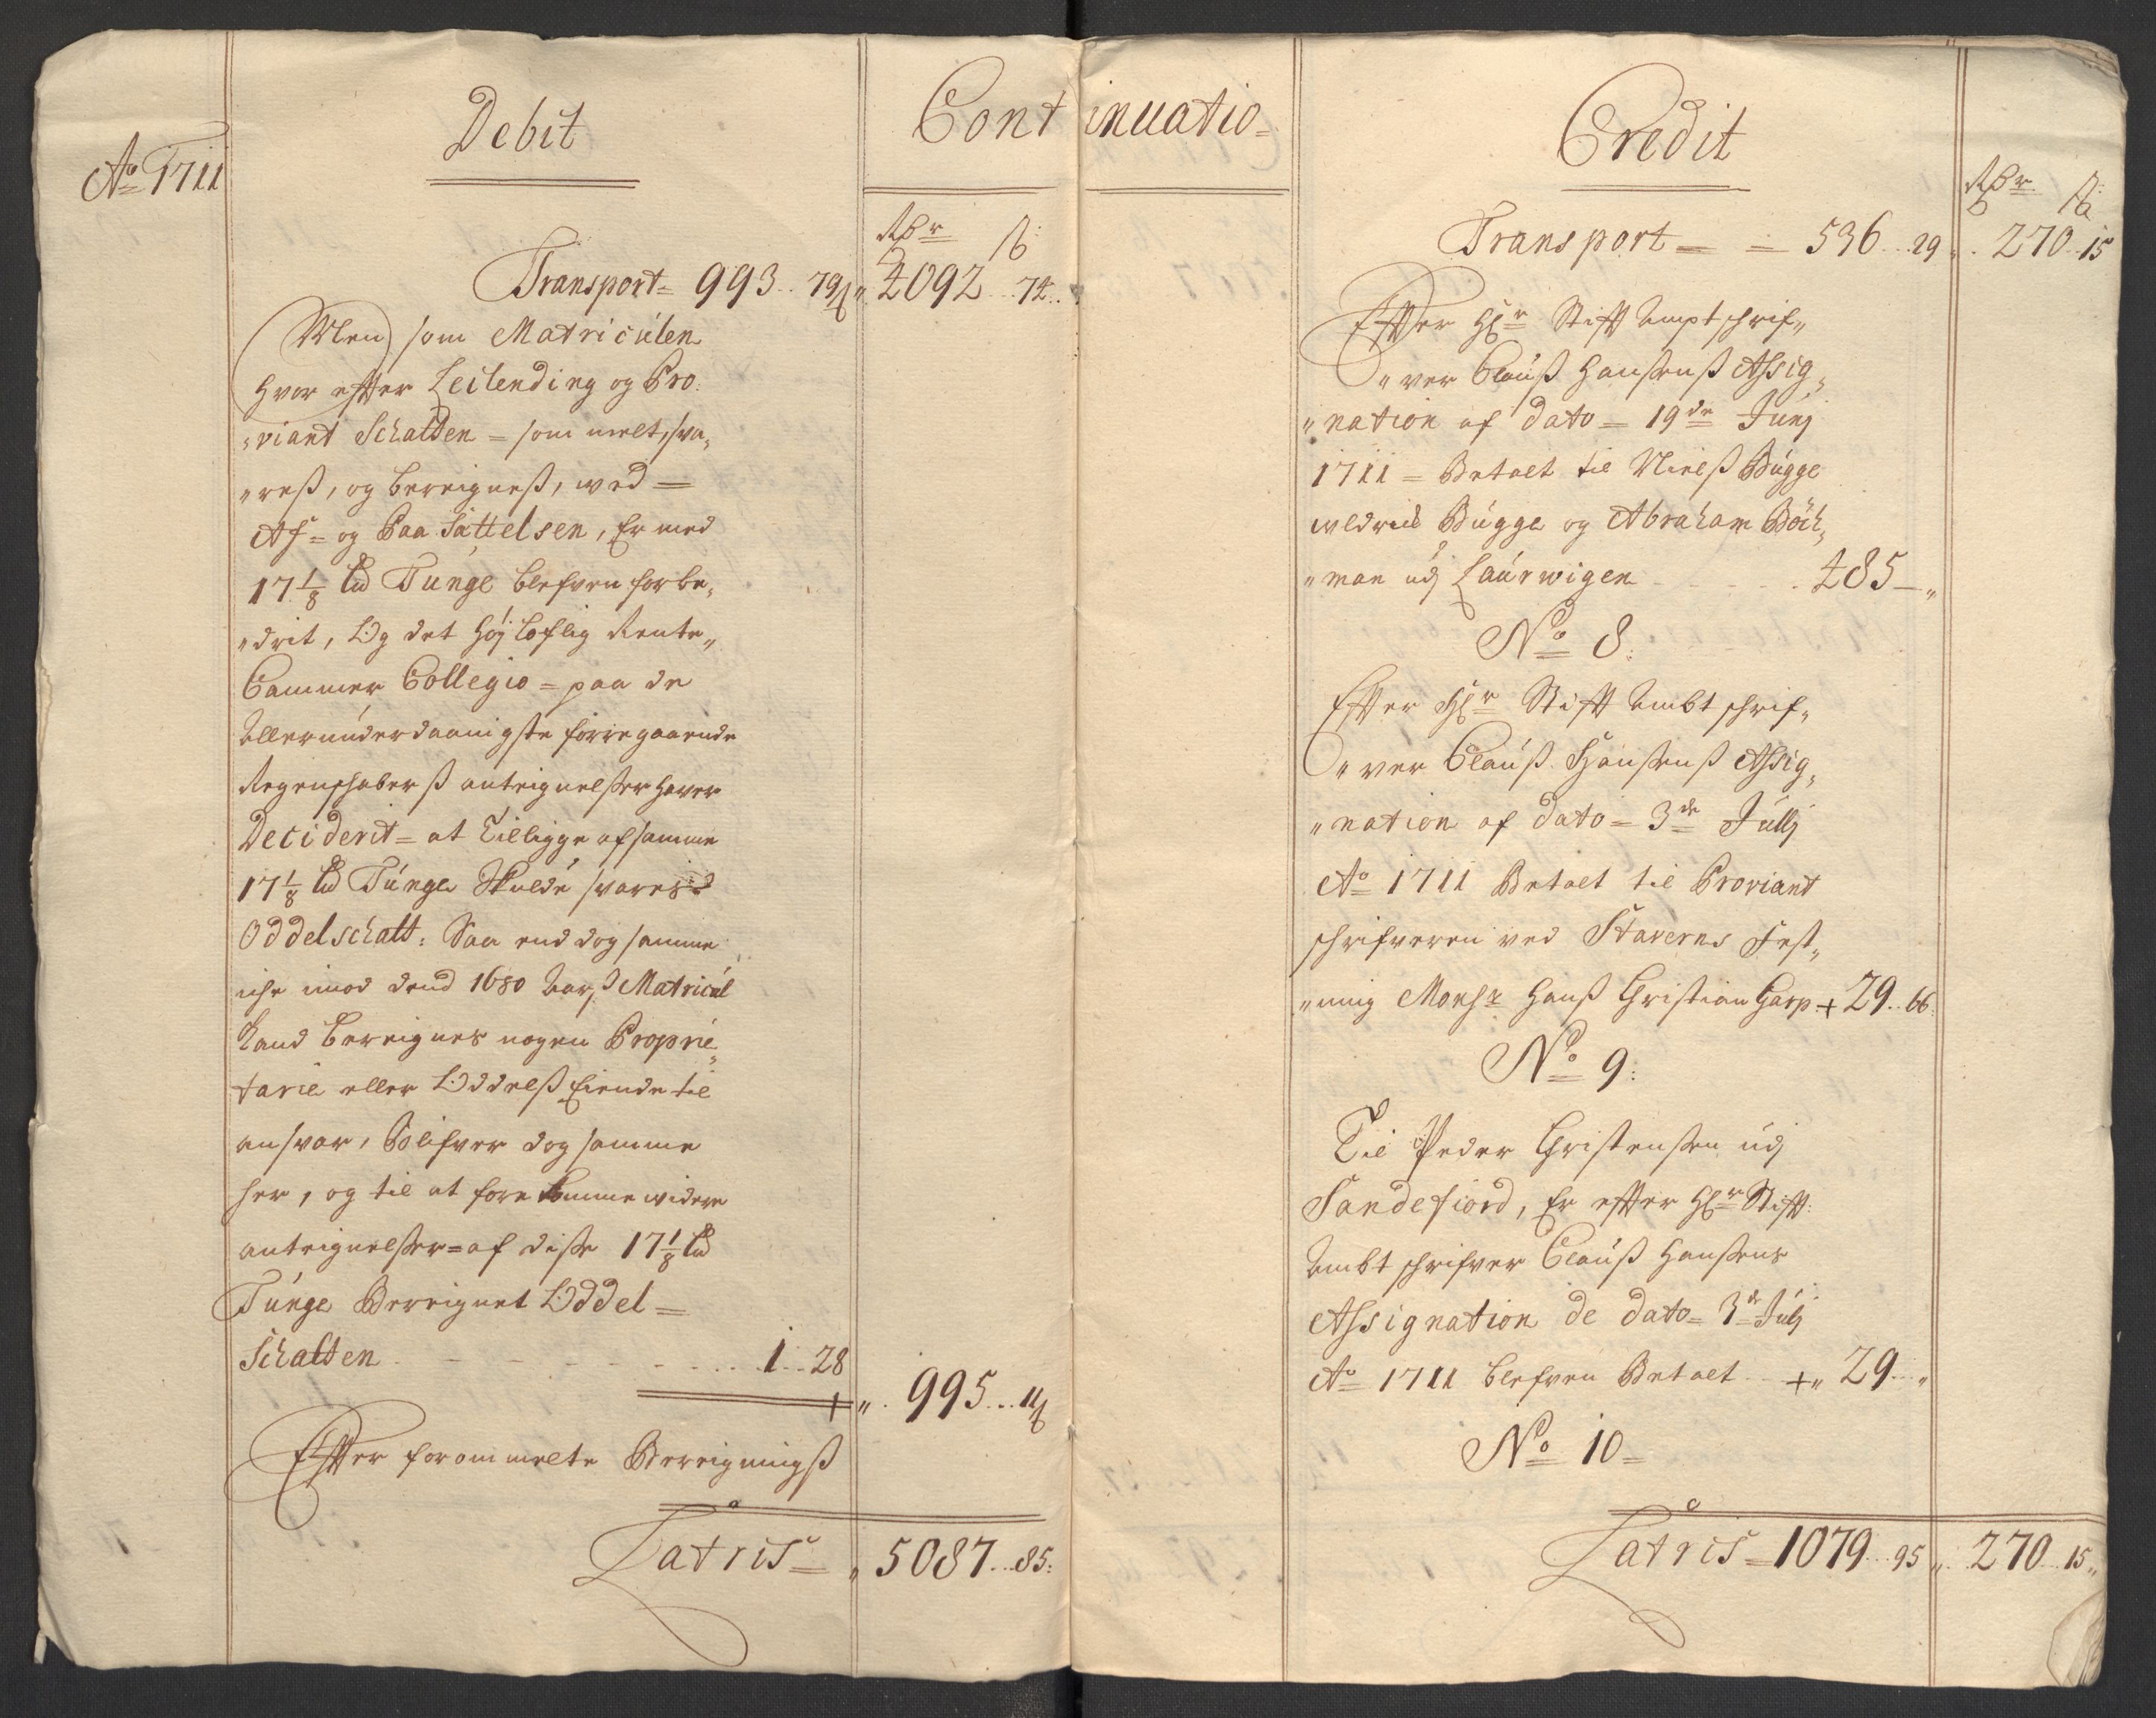 Debit
Continuatio
Credit
Ao 1711
Rdr ß:
Transport = 993 .. 79ß „ 4092 .. 74 ..
Men som Matriculen
hvor efter Leilending og Pro-
„viant Schatten = som melt, sva-
„res, og bereignes, ved =
Af = og Paa Sættelsen, Er med
17 1/8 Ld Tunge blefven forbe-
„drit, Og det Høj loflig Rente-
Cammer Collegio = paa de
Allerunderdaanigste forregaaende
Regenschabers anteignelsser haver
Deciderit = at Tillige af samme
17 1/8 Ld Tunge Skulde svares
Oddelschatt: Saa end dog samme
iche imod dend 1680 Aars Matricul
kand bereignes nogen Proprie-
tarie eller Oddelß Eiende til
ansvar, Blifver dog samme
her, og til at forekomme widere
antreignelsser = af disse 17 1/8 Ld
Tunge Bereignet Oddel =
Schatten - - - - - 1 .. 28
„ . 995 ... 11ß
Efter forommelte Bereignings
Latris = „ 5087 ... 85:
Rdr ß:
Transport = = 536 .. 29 „ . 270 .. 15
Efter Hr Stifft Ampt schrif-
„ver Clauß Hanßens Assig-
„nation af dato = 19de Junj
1711 = Betalt til Nielß Bugge
Bugge og Abraham Böch-
„man udj Laurwigen - - - 485 — „
No 8:
Efter Hr Stifft Ambt schrif-
„ver Clauß Hanßens Assig-
„nation af dato = 3de Jullj
Ao 1711 Betalt til Proviant
schrifveren ved Staverns Fest-
„ning Monsr Hanß Christian Garp + 29 .. 66
No 9:
Til Peder Christensen udj
Sandefiord, Er efter Hr Stifft:
Ambt schrifver Clauß Hanßens
Assignation de dato = 3de Julj
Ao 1711 blefven Betalt .. + „ 29 .. „
No 10 =
Latris = 1079 .. 95 „ . 270 .. 15 „